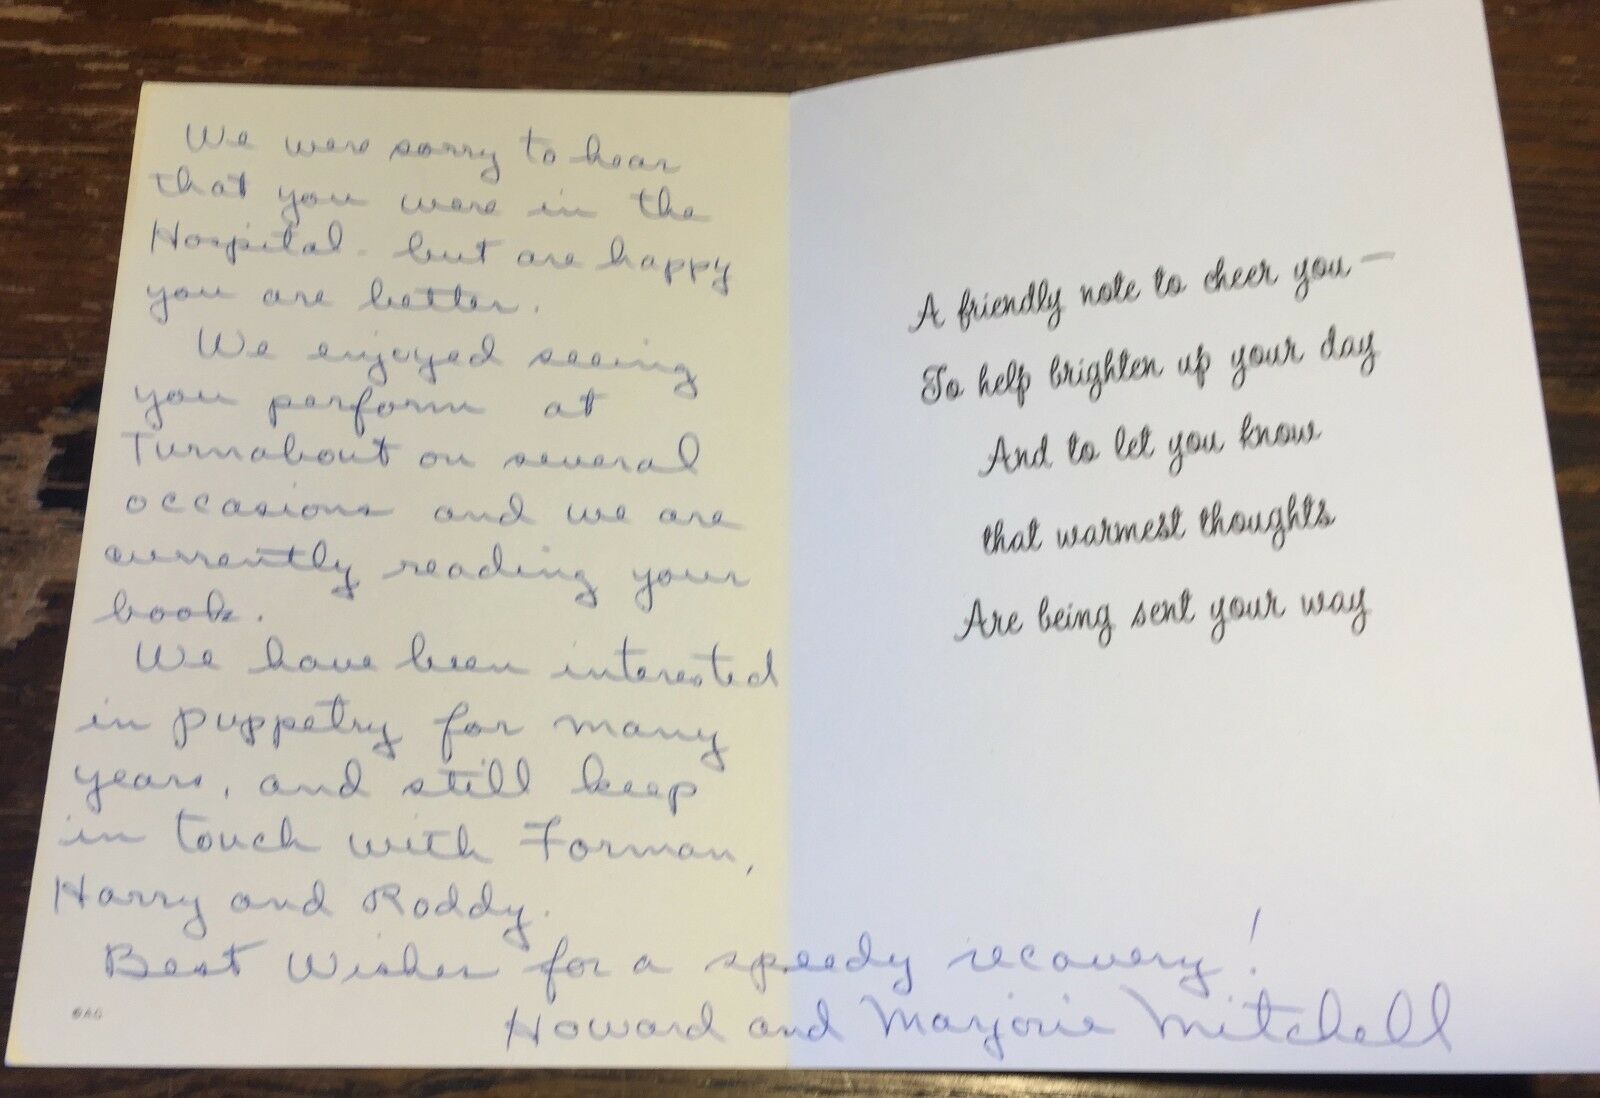 We were sorry to hear
that you were in the
Hospital - but are happy
you are better.
We enjoyed seeing
you perform at
Turnabout on several
occasions and we are
currently reading your
book.
We have been interested
in puppetry for many
years, and still keep
in touch with Forman,
Harry and Roddy.
Best Wishes for a speedy recovery!
Howard and Marjorie Mitchell
©AG
A friendly note to cheer you —
To help brighten up your day
And to let you know
that warmest thoughts
Are being sent your way